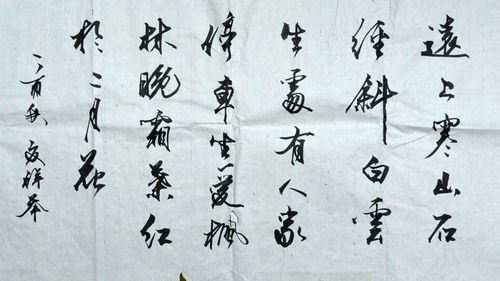 遠上寒山石
徑斜白雲
生處有人家
停車坐愛楓
林晚霜葉紅
於二月花
丁酉秋